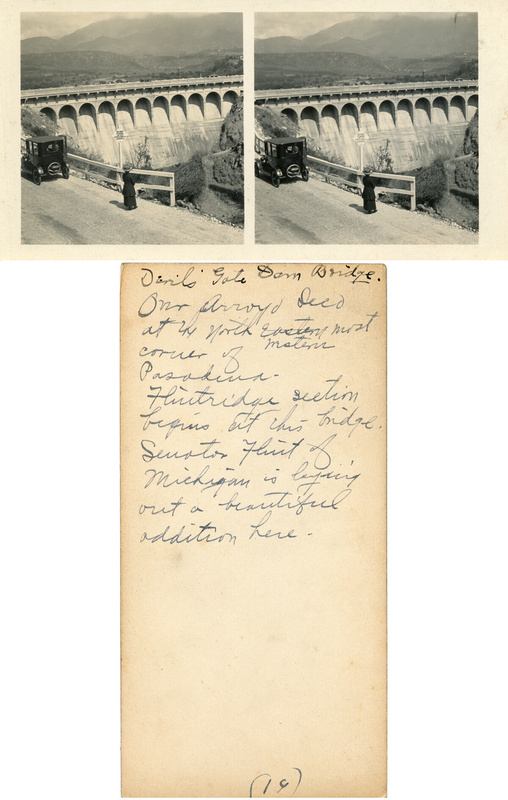 Devils' Gate Dam Bridge.
Our Arroyo
at the North Eastern most
western
corner of
Pasadena.
Flintridge section
begins at this bridge.
Senator Flint of
Michigan is laying
out a beautiful
addition here.